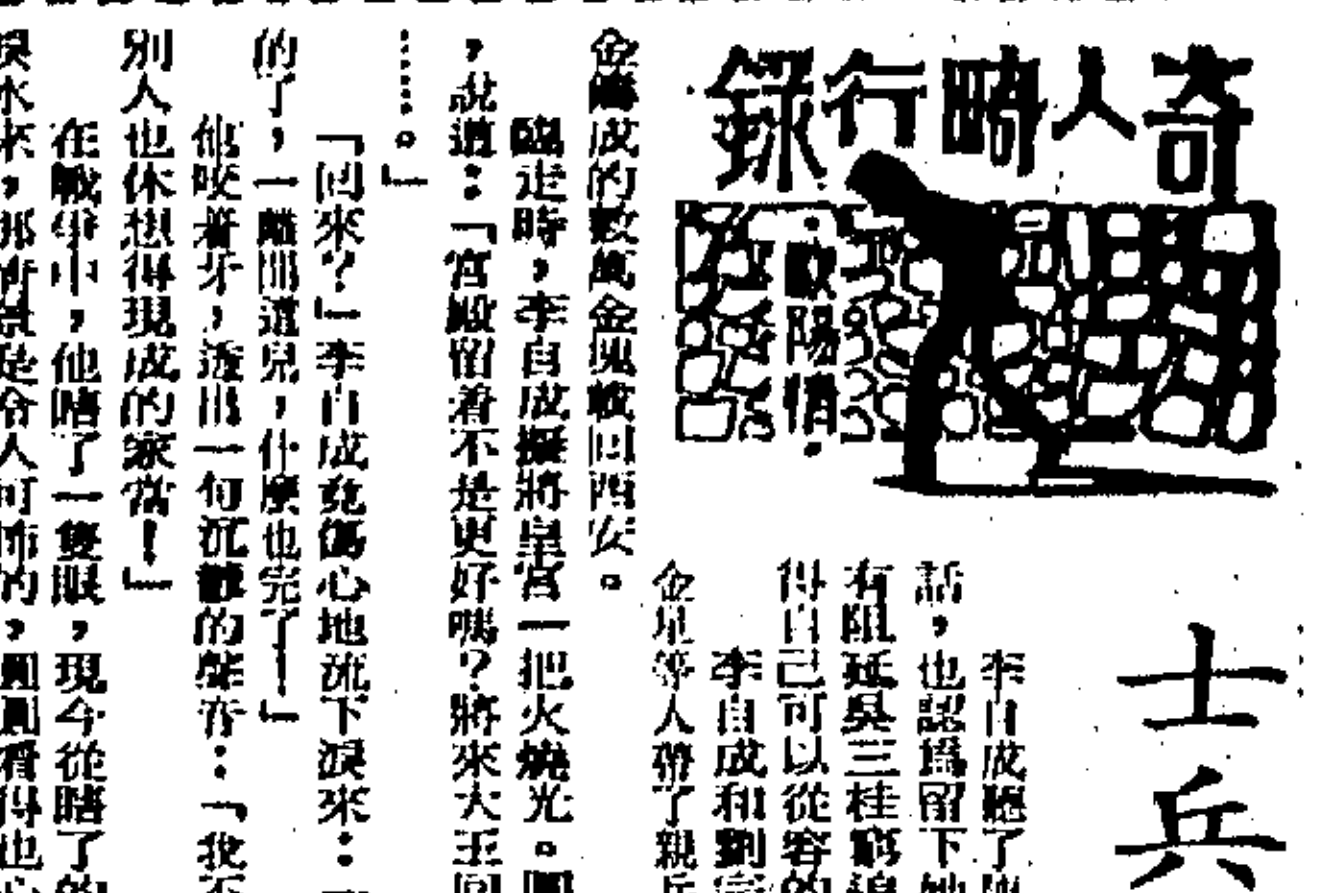 奇人畸行錄
·歐陽惰·
士兵
李自成聽了陳
話，也認爲留下她
有阻延吳三桂窮追
得自己可以從容的
李自成和劉宗
金星等人帶了親兵
金鑄成的數萬金塊載回西安。
臨走時，李自成擬將皇宮一把火燒光。圓
，說道：「宮殿留着不是更好嗎？將來大王回
……。」
「回來？」李自成竟傷心地流下淚來：
的了，一離開這兒，什麼也完了！」
他咬着牙，透出一句沉聽的聲音：「我不
別人也休想得現成的家當！」
在戰爭中，他瞎了一隻眼，現今從瞎了的
淚水來，那情景是令人可怖的，圓圓看得也心